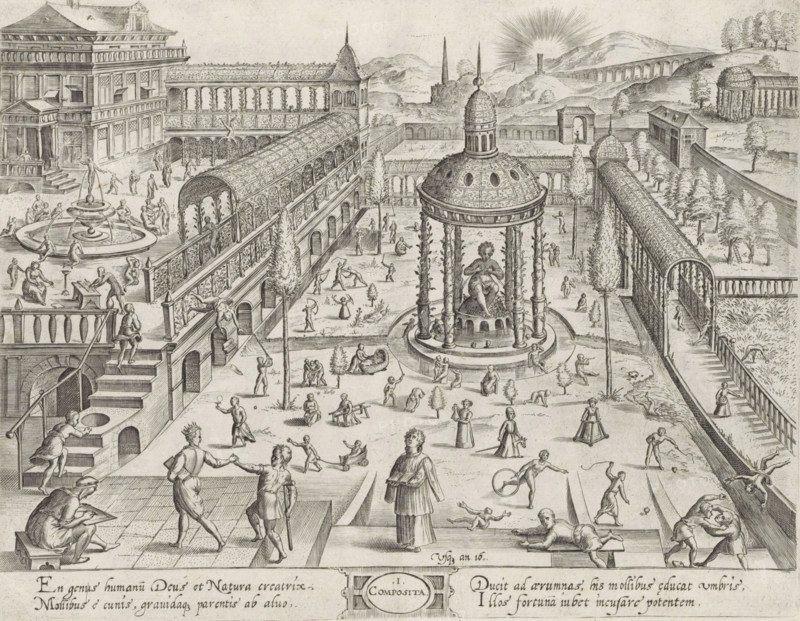 Vsq, an 16.
En genus humanū Deus et Natura creatrix,
Mollibus è cunis, grauidaq, parentis ab aluo,
.I.
COMPOSITA.
Ducit ad ærumnas, his mollibus educat vmbris,
Illos fortuna iubet incusare potentem.